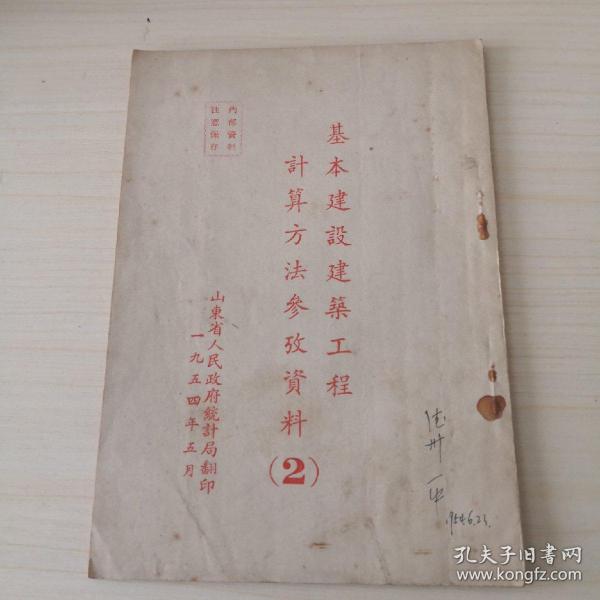 內部資料
注意保存
基本建設建築工程
計算方法參攷資料
(2)
山東省人民政府統計局翻印
一九五四年五月
德州一中
1954.6.23.
孔夫子旧书网
www.kongfz.com